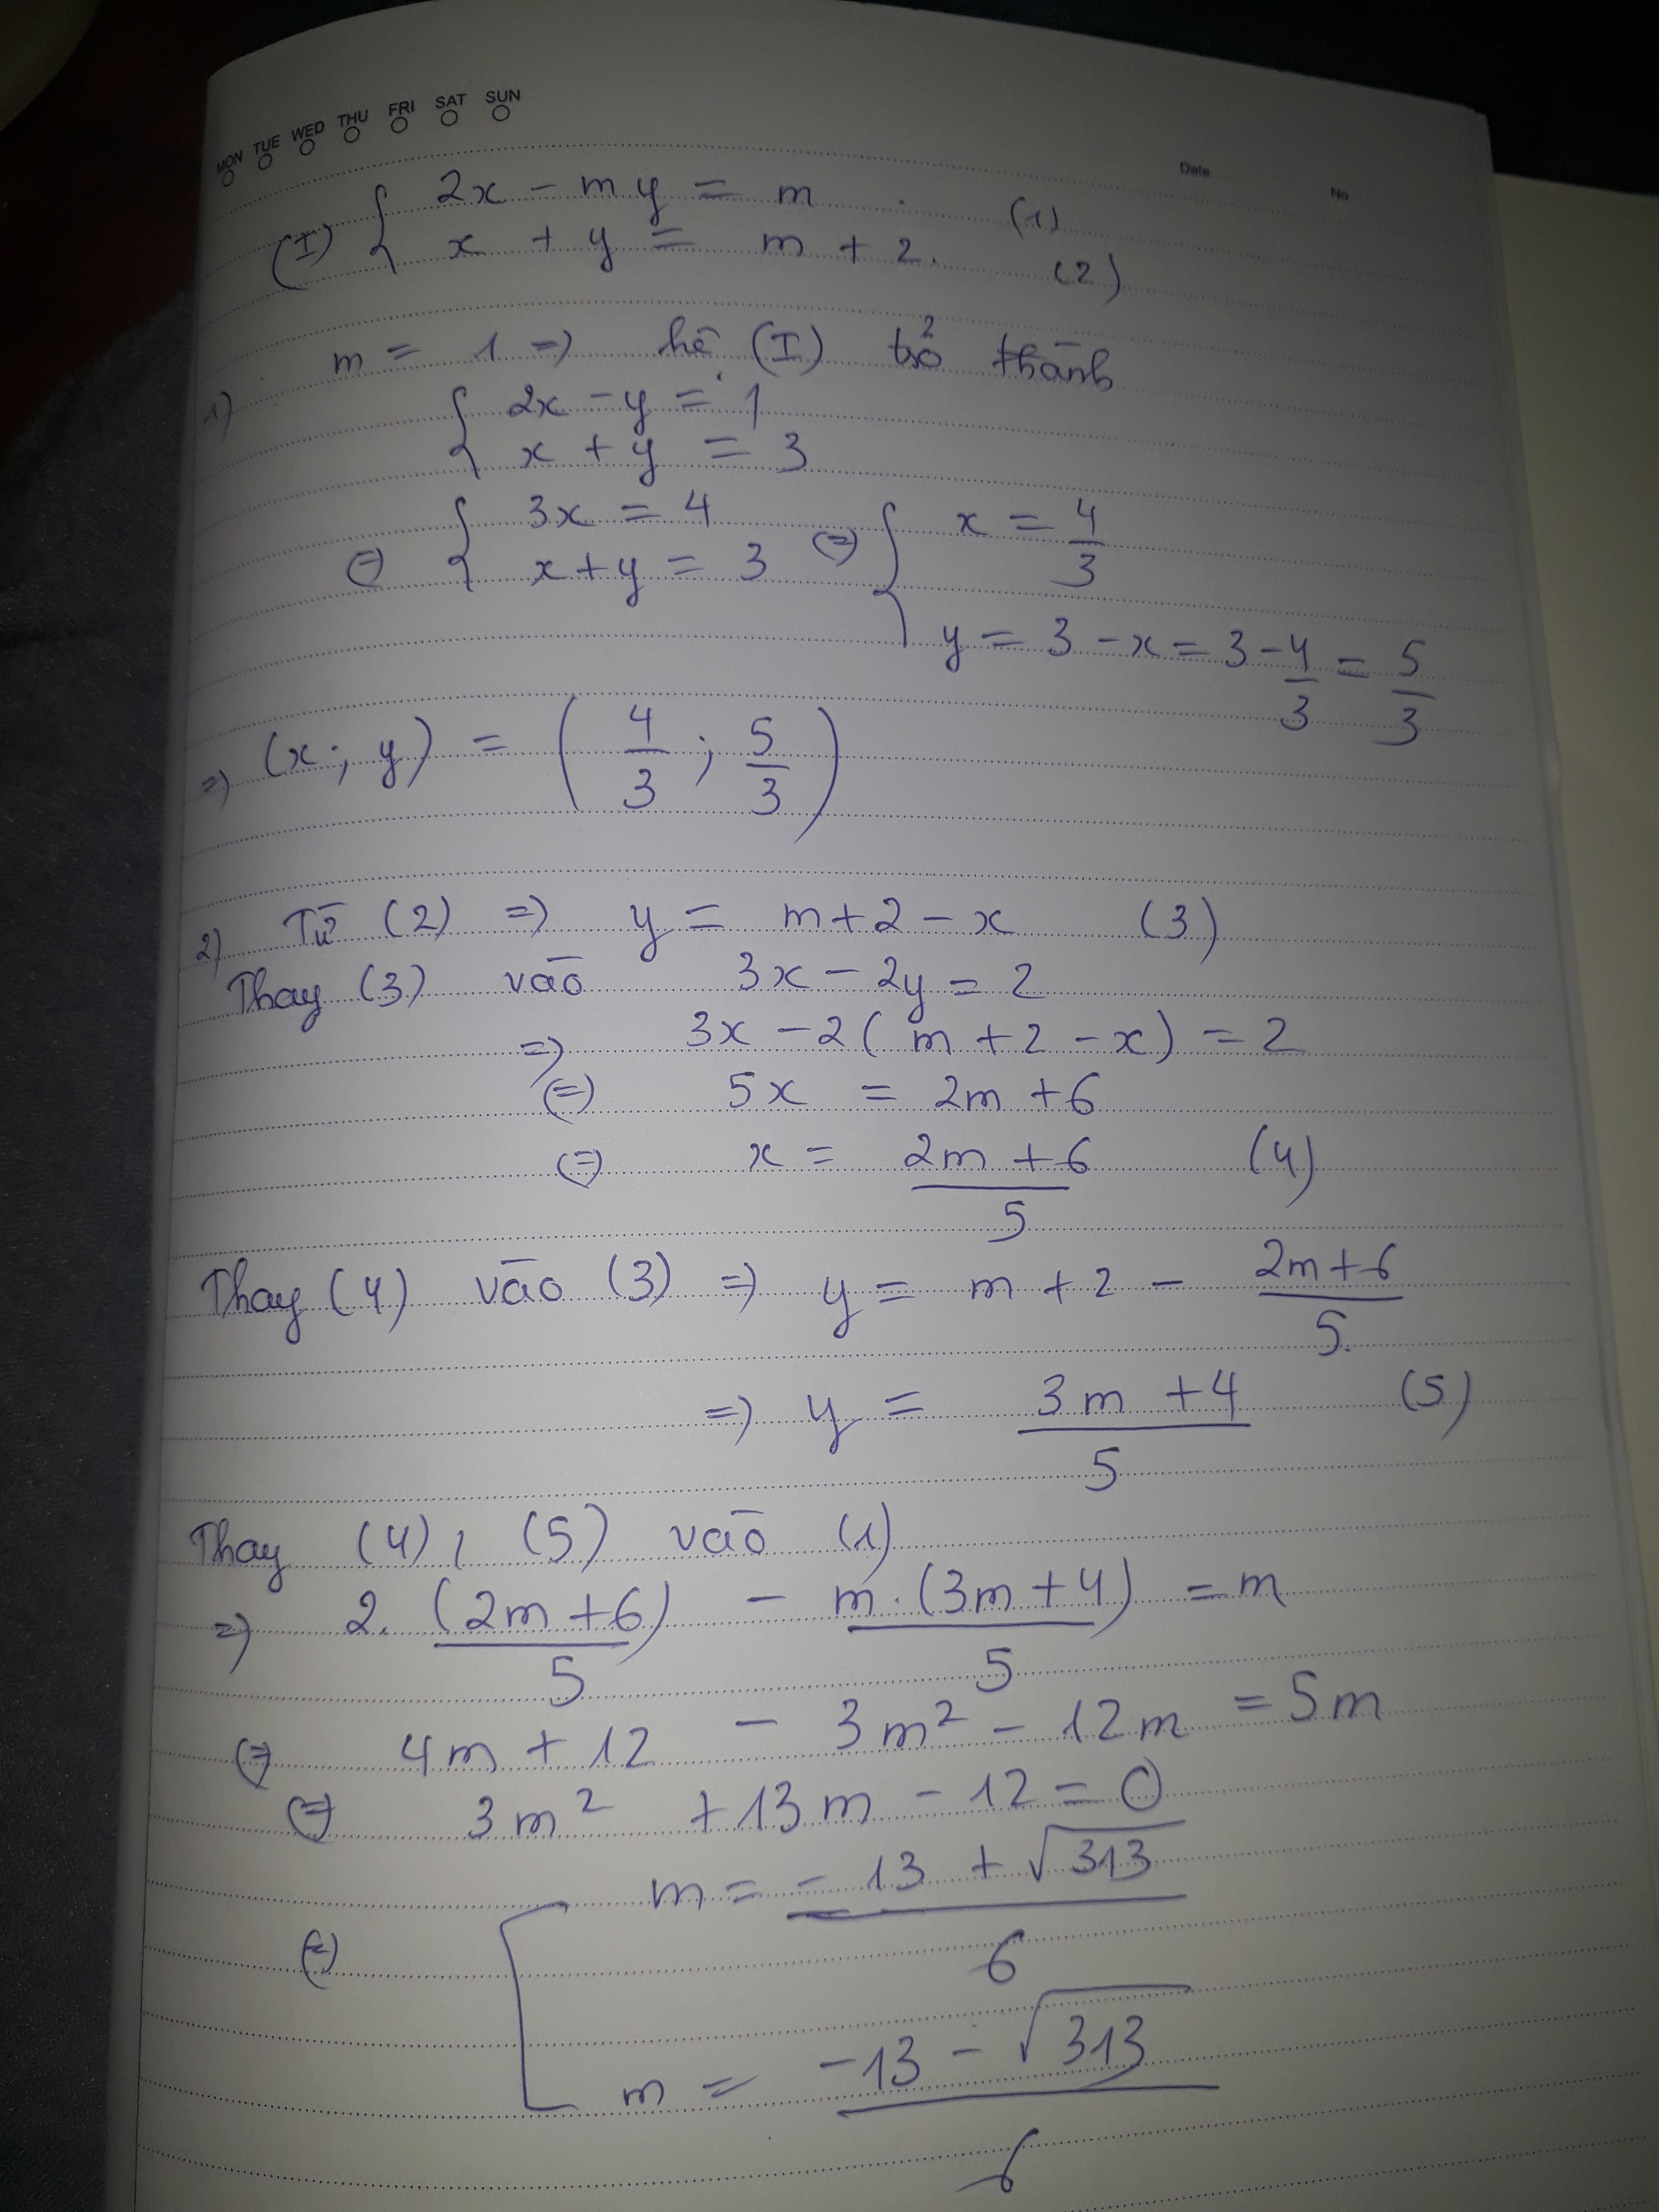 MON TUE WED THU FRI SAT SUN
Date
No
(I) { 2x - my = m (1)
x + y = m + 2. (2)
1) m = 1 => hệ (I) trở thành
{ 2x - y = 1
x + y = 3
(=) { 3x = 4
x + y = 3 (=) { x = 4/3
y = 3 - x = 3 - 4/3 = 5/3
=> (x; y) = (4/3; 5/3)
2) Từ (2) => y = m + 2 - x (3)
Thay (3) vào 3x - 2y = 2
=> 3x - 2(m + 2 - x) = 2
(=) 5x = 2m + 6
(=) x = (2m + 6)/5 (4)
Thay (4) vào (3) => y = m + 2 - (2m + 6)/5.
=> y = (3m + 4)/5 (5)
Thay (4), (5) vào (1)
=> 2. (2m + 6)/5 - m.(3m + 4)/5 = m
(=) 4m + 12 - 3m² - 12m = 5m
(=) 3m² + 13m - 12 = 0
(=) [ m = (-13 + √313)/6
m = (-13 - √313)/6